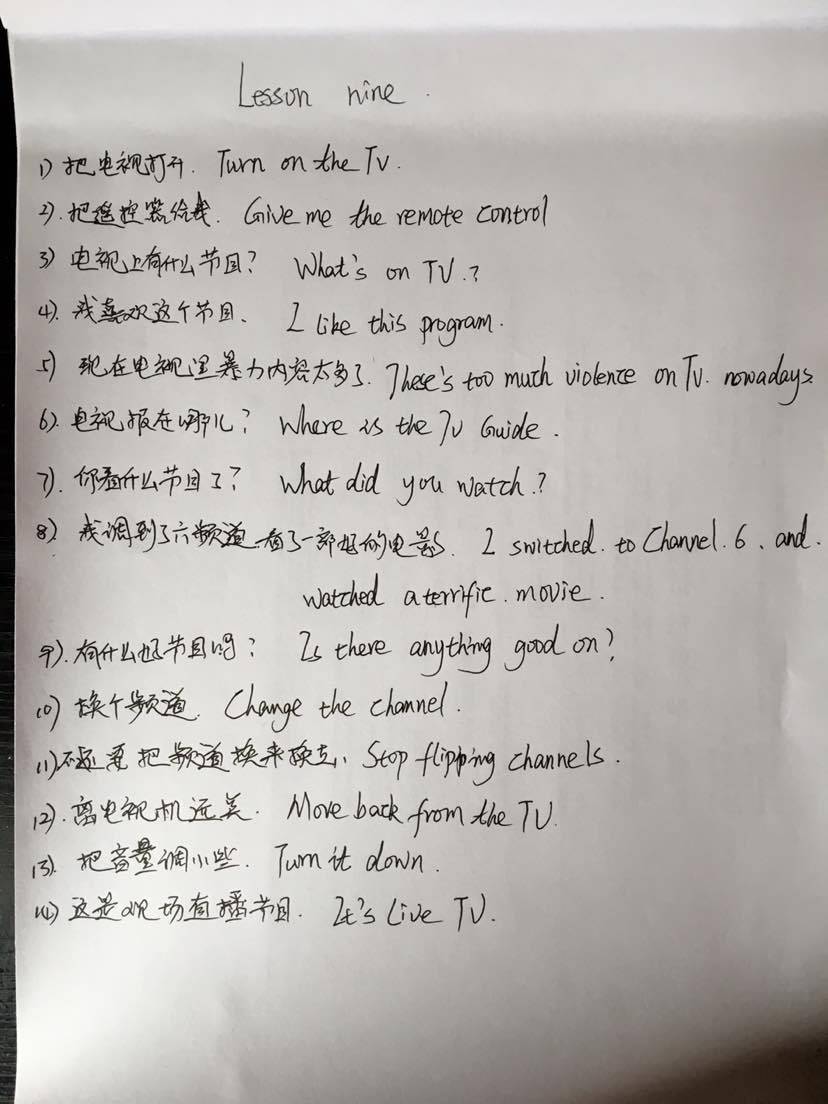 Lesson nine.
1) 把电视打开. Turn on the TV.
2). 把遥控器给我. Give me the remote control
3) 电视上有什么节目? What's on TV.?
4). 我喜欢这个节目. I like this program.
5) 现在电视里暴力内容太多了. There's too much violence on TV. nowadays.
6). 电视报在哪儿? Where is the TV Guide.
7). 你看什么节目了? What did you watch.?
8) 我调到了六频道.看了一部好的电影. I switched. to Channel. 6. and.
watched a terrific. movie.
9). 有什么好节目吗? Is there anything good on?
10) 换个频道. Change the channel.
11) 不要把频道换来换去. Stop flipping channels.
12). 离电视机远关. Move back from the TV.
13). 把音量调小些. Turn it down.
14) 这是现场直播节目. It's Live TV.